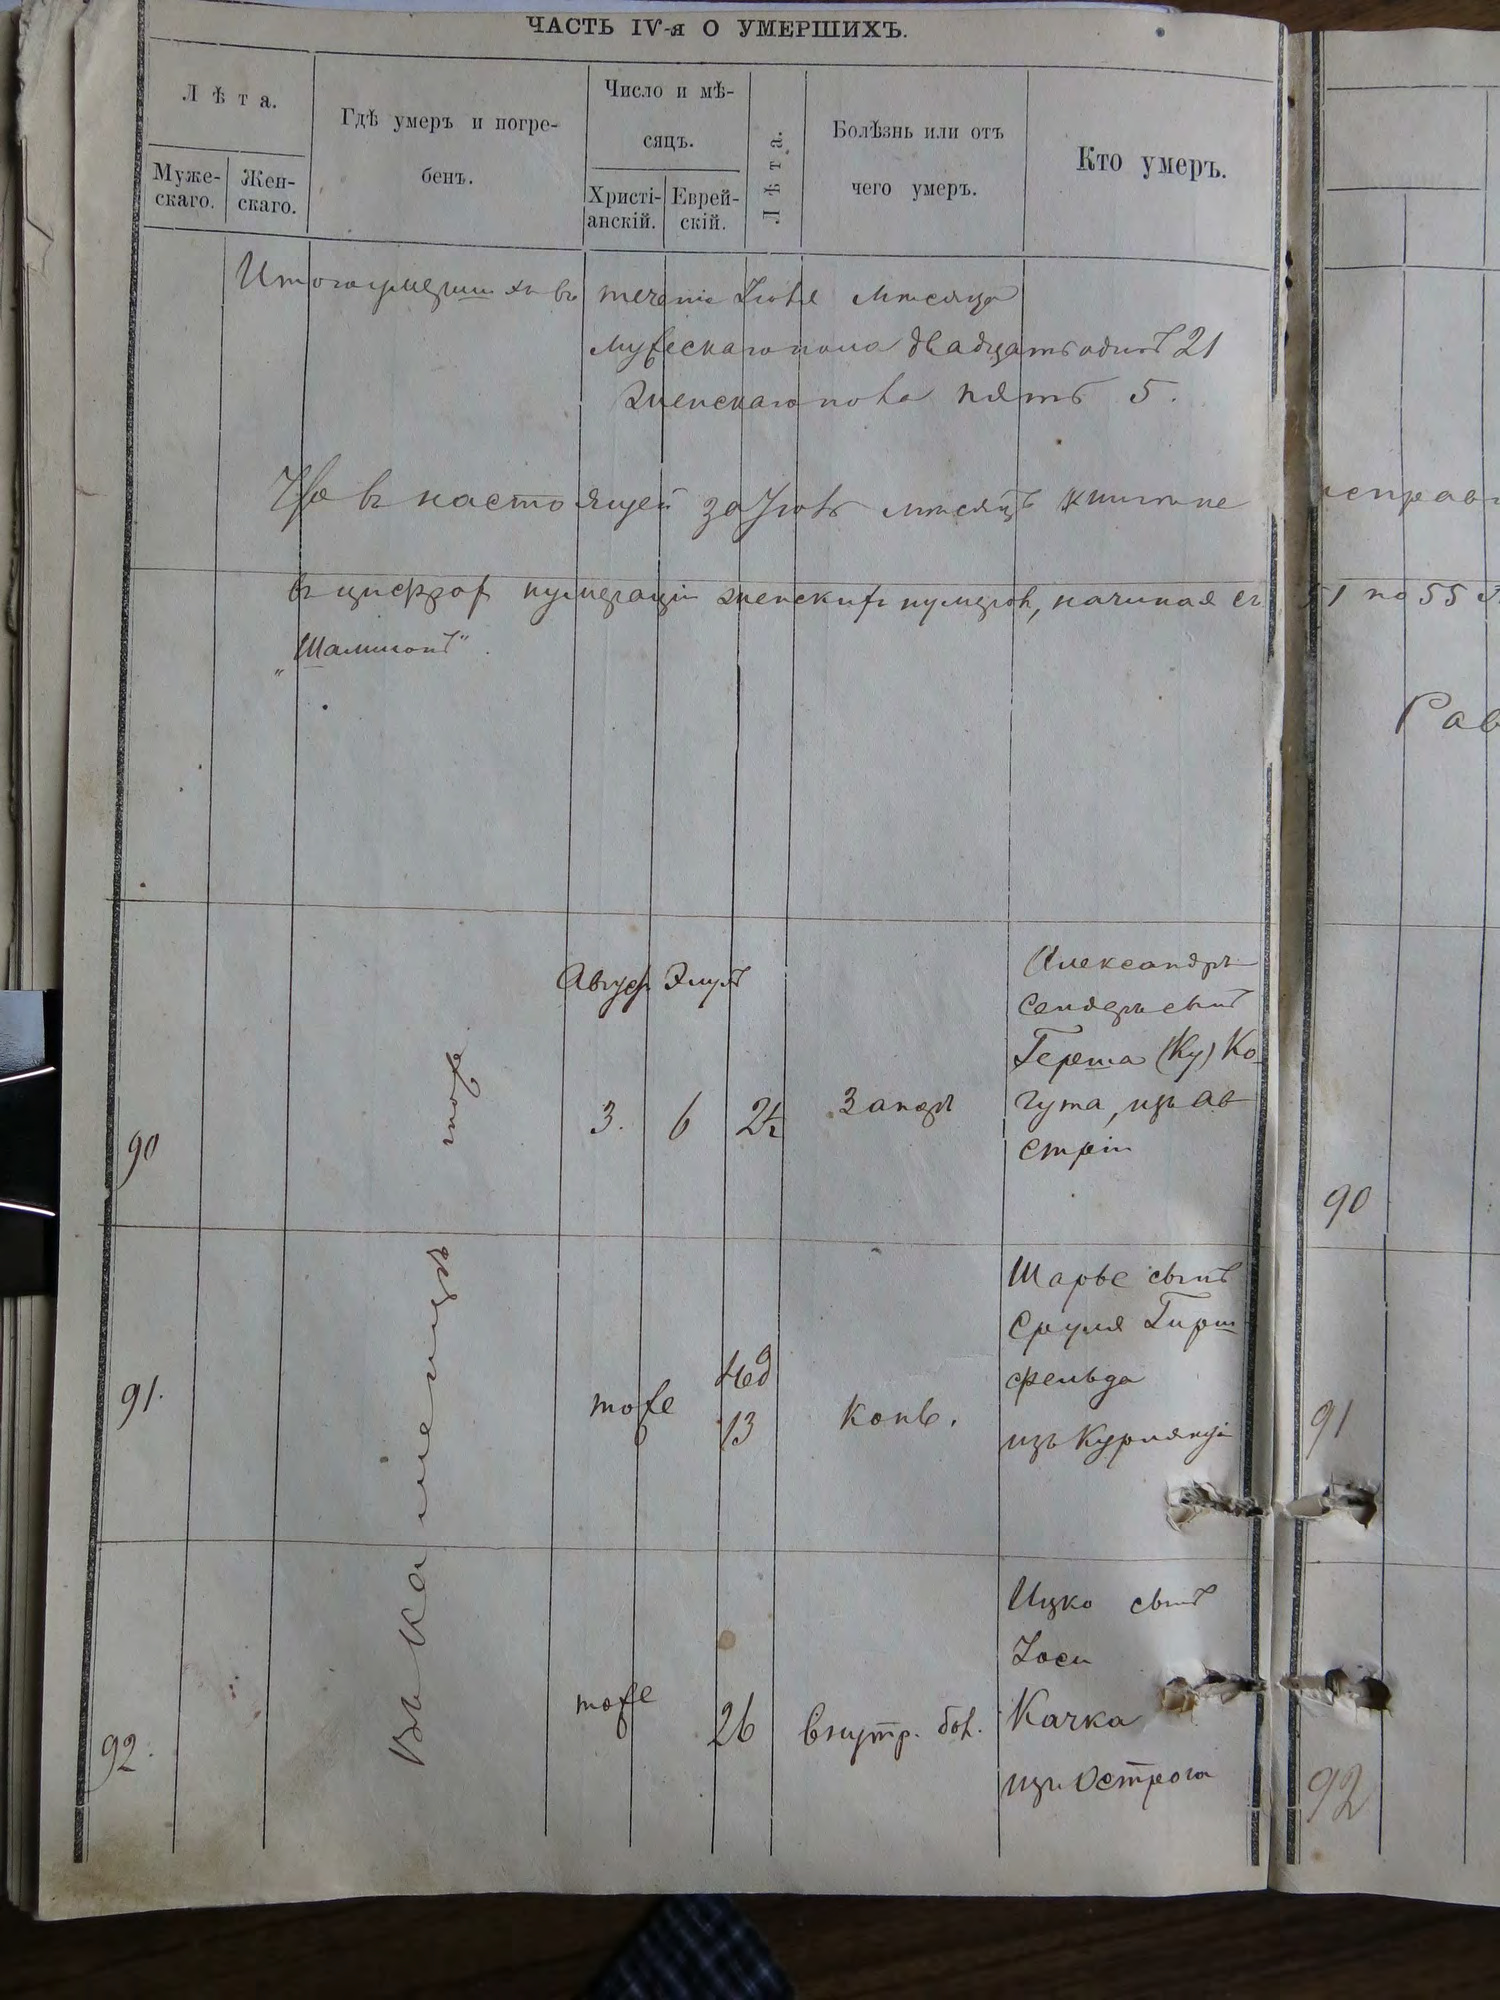 ЧАСТЬ IV-я О УМЕРШИХЪ.
Лѣта.
Муже-
скаго.
Жен-
скаго.
Гдѣ умеръ и погре-
бенъ.
Число и мѣ-
сяцъ.
Христі-
анскій.
Еврей-
скій.
Лѣта.
Болѣзнь или отъ
чего умеръ.
Кто умеръ.
Итого умершихъ въ теченіе Іюля мѣсяца
мужескаго пола двадцать одинъ 21
женскаго пола пять 5.
Что въ настоящей за Іюль мѣсяцъ книги не исправ
въ цифрахъ нумераціи женскихъ нумеровъ, начиная съ 51 по 55
„Шамшонъ".
Рав
Август Элулъ
90
тоже
3.
6
2½
Запоръ
Александръ
Сендеръ сынъ
Герша (Ку) Ко-
гута, изъ Ав
стріи
90
въ Каменцѣ
91.
тоже
Нед
13
Конв.
Шарье сынъ
Сруля Гирш
фельда
изъ Курлянді
91
92.
тоже
26
внутр. бол.
Ицко сынъ
Іоси
Качка
изъ Острога
92